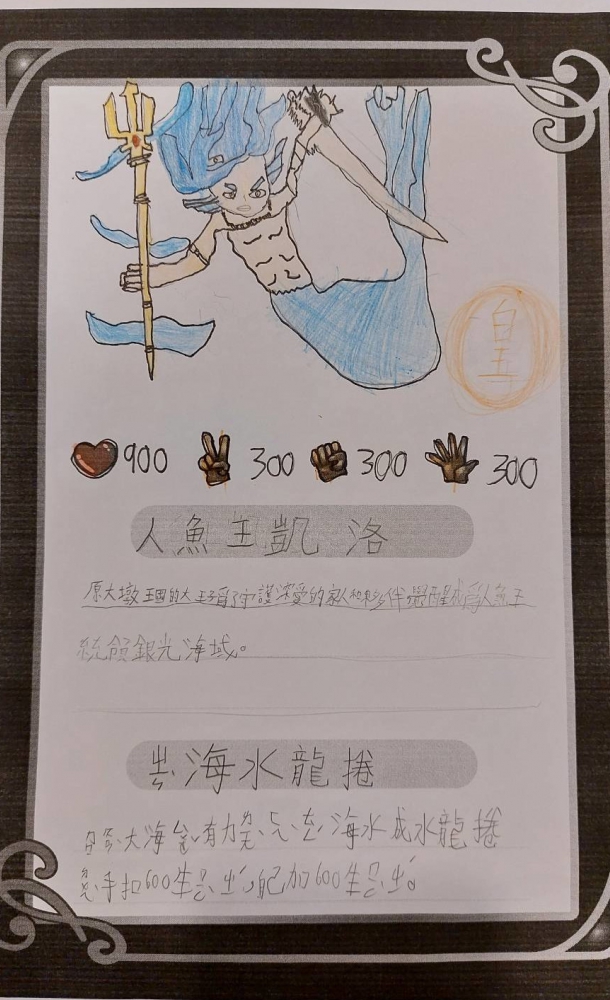 皇
900 300 300 300
人魚王凱洛
原大墩王國的大王子為了守護深愛的家人和夥伴覺醒成為人魚王
統領銀光海域。
海水龍捲
大海 有力 海水成水龍捲
手扣600生 加600生